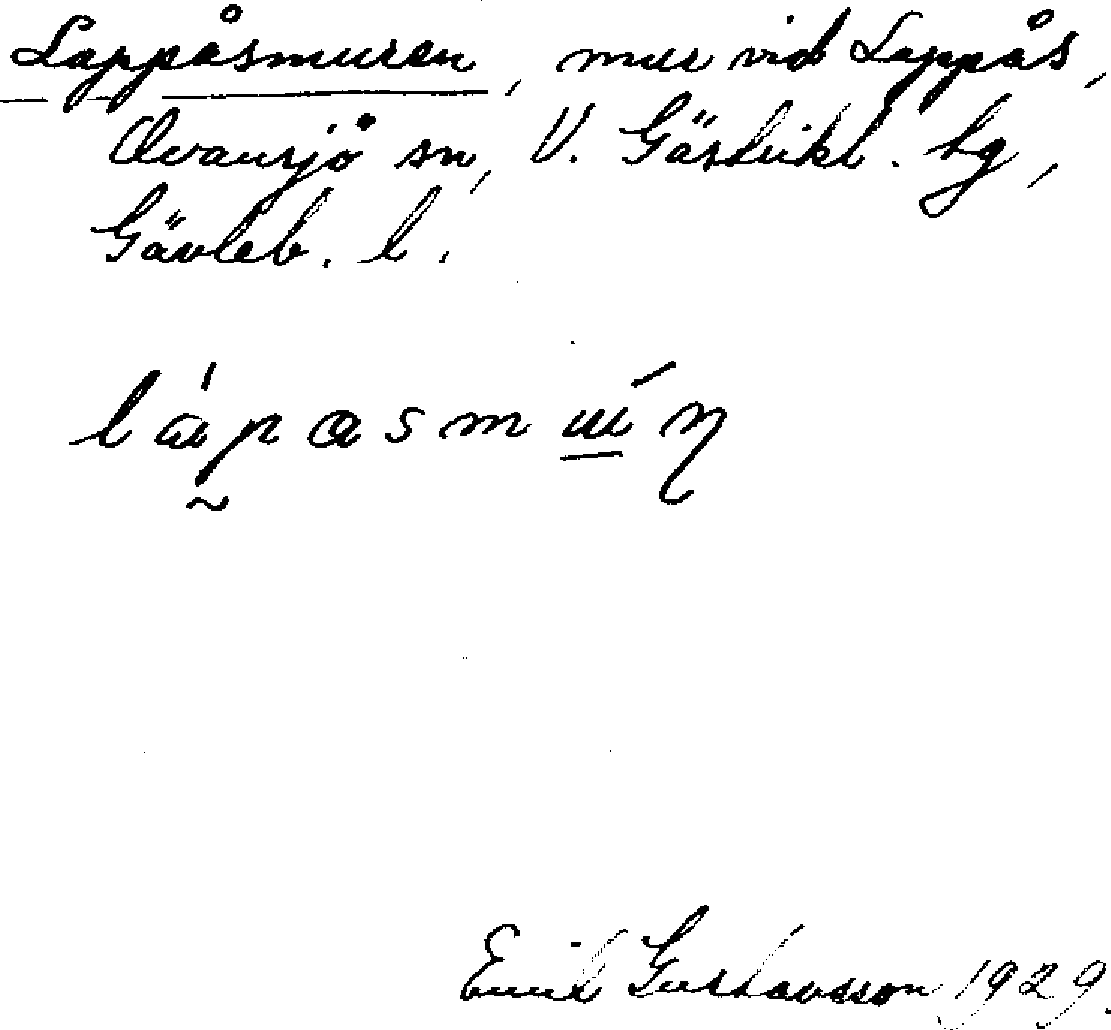 Lappåsmuren, mur vid Lappås,
Ovansjö sn, V. Gästrikl. tg,
Gävleb. l.
Emil Gustavsson 1929.